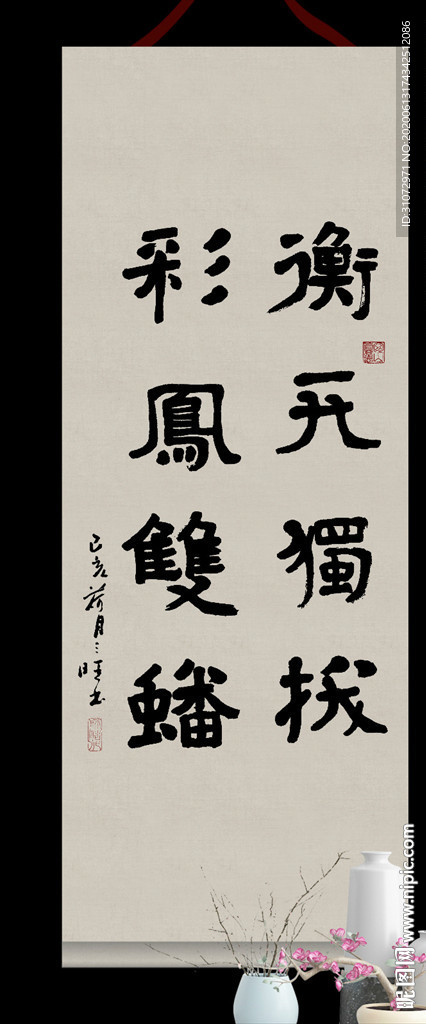 衡獨拔
彩鳳雙蟠
己亥荷月三旺书
ID:31072971 NO:20200613174342512086
昵图网 www.nipic.com